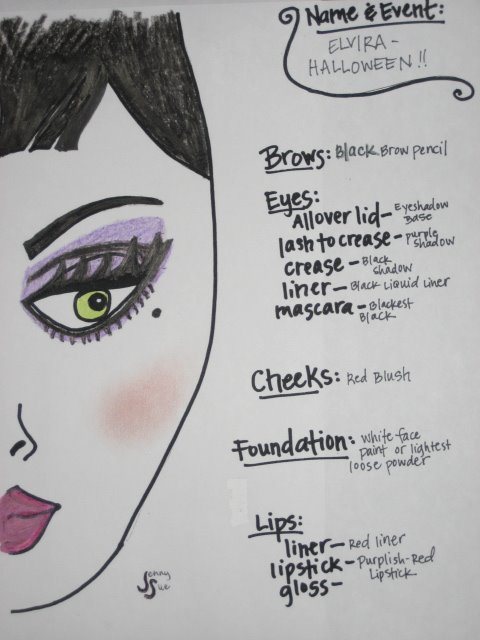 Name & Event:
ELVIRA -
HALLOWEEN!!
Brows: Black Brow Pencil
Eyes:
Allover lid - Eyeshadow
Base
lash to crease - purple
shadow
crease - Black
shadow
liner - Black Liquid Liner
mascara - Blackest
Black
Cheeks: Red Blush
Foundation: White-face
paint or lightest
loose powder
Lips:
liner - Red liner
lipstick - Purplish-Red
Lipstick
gloss -
Jenny
Sue